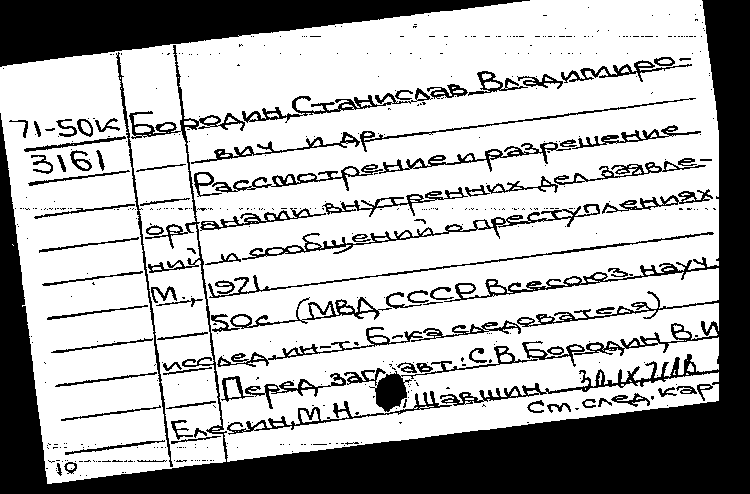 71-50к Бородин, Станислав Владимиро-
3161 вич и др.
Рассмотрение и разрешение
органами внутренних дел заявле-
ний и сообщений о преступлениях.
М., 1971.
50с (МВД СССР. Всесоюз. науч.-
исслед. ин-т. Б-ка следователя)
Перед загл. авт.: С.В. Бородин, В.И
Елесин, М.Н. Шавшин.
См. след. кар
10